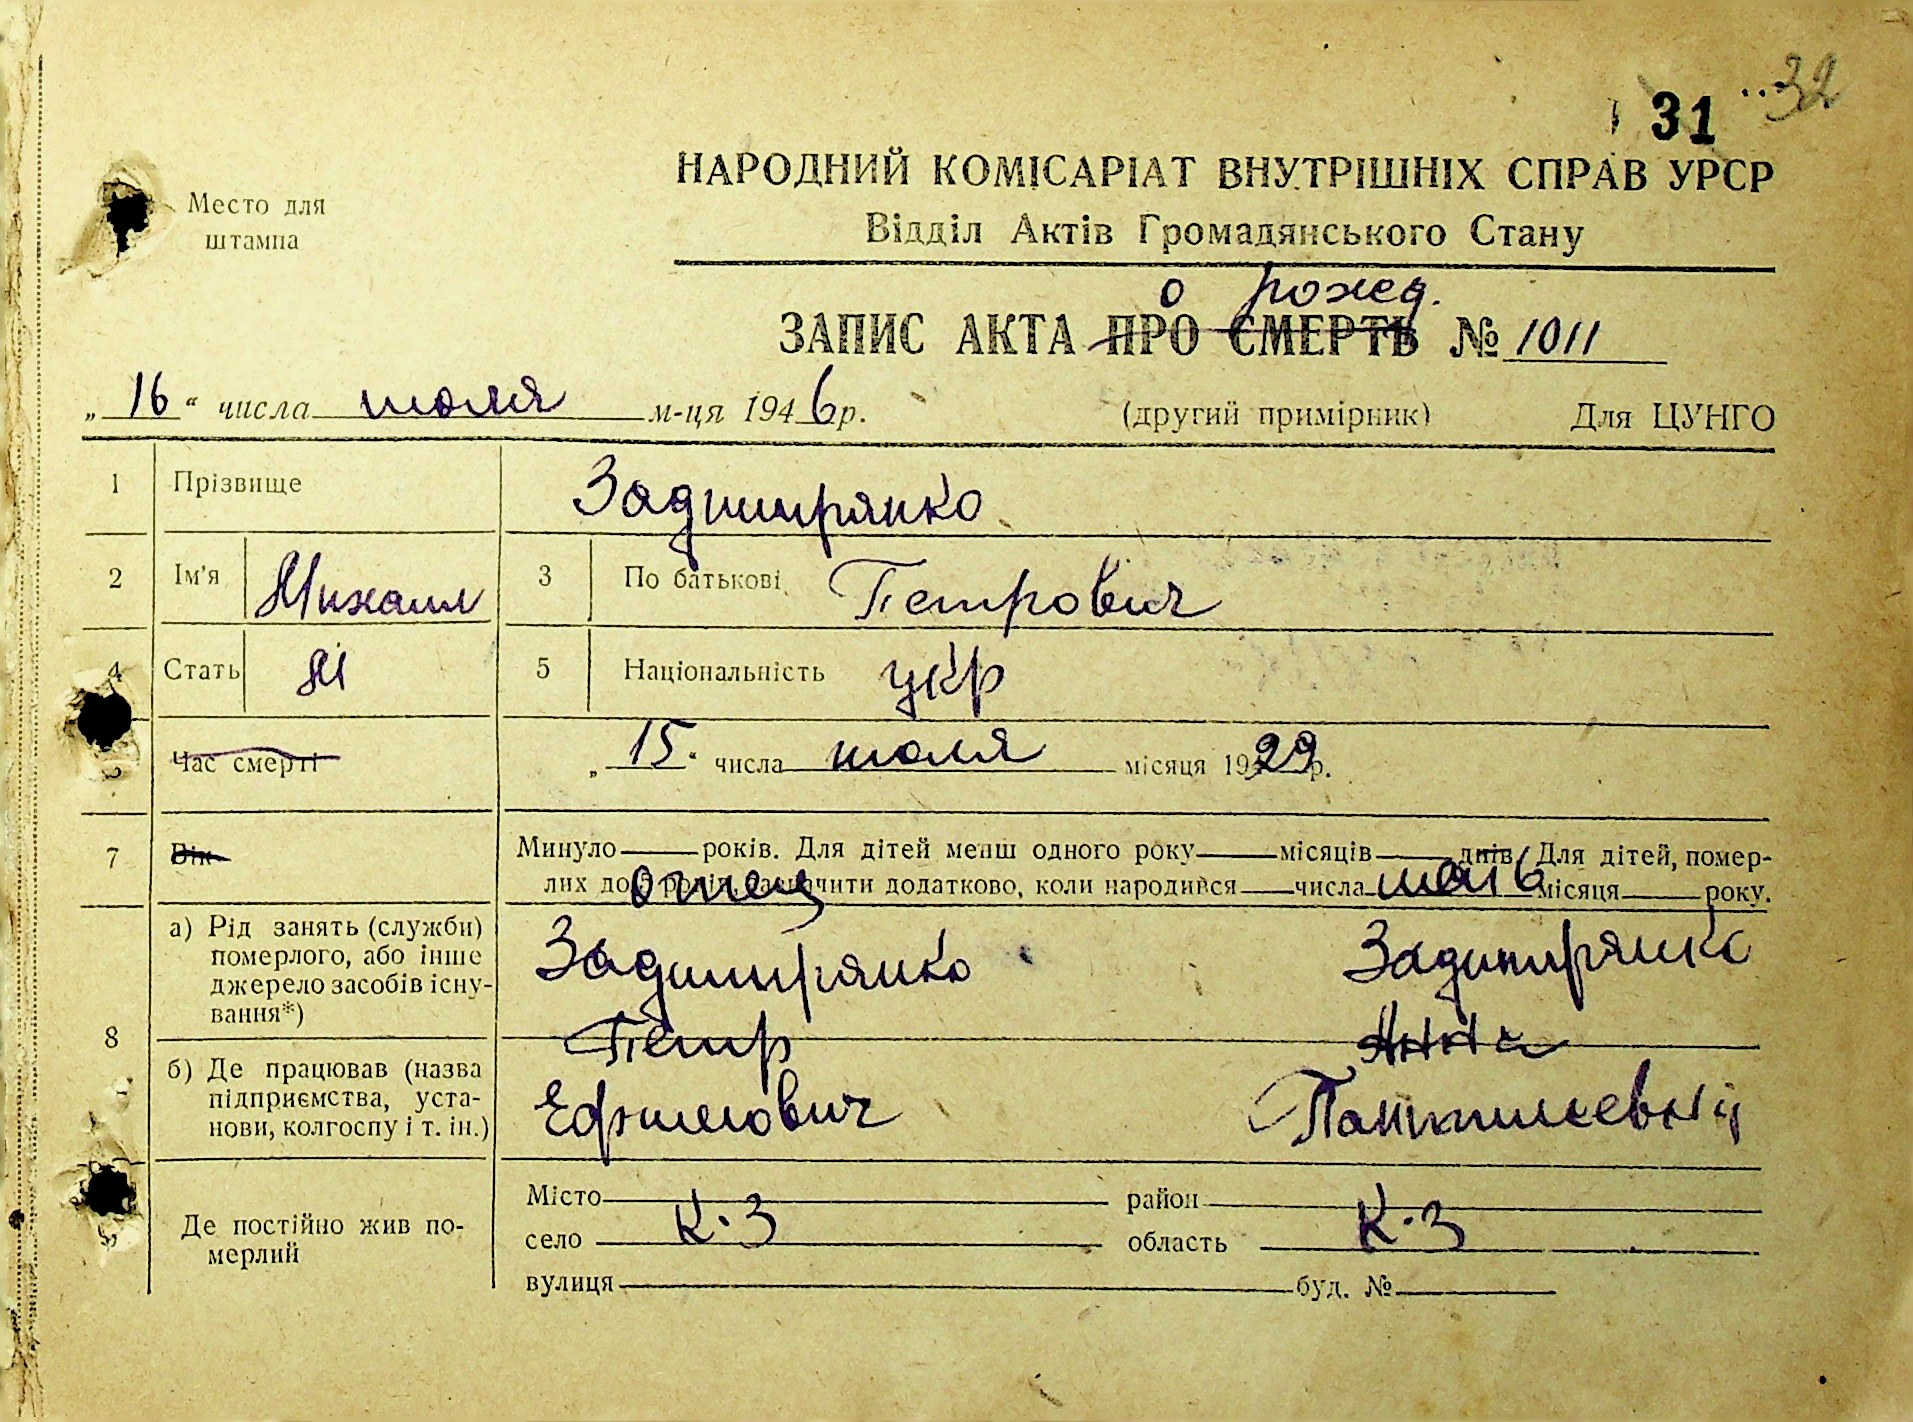 31 32
Место для
штампа
НАРОДНИЙ КОМІСАРІАТ ВНУТРІШНІХ СПРАВ УРСР
Відділ Актів Громадянського Стану
о рожд.
ЗАПИС АКТА ПРО СМЕРТЬ № 1011
„16“ числа июля м-ця 1946 р. (другий примірник) Для ЦУНГО
1 Прізвище Задимрянко
2 Ім'я Михаил 3 По батькові Петрович
4 Стать М 5 Національність укр
Час смерті „15“ числа июля місяця 1929 р.
7 Вік Минуло років. Для дітей менш одного року місяців днів. Для дітей, помер-
лих до 5 років, зазначити додатково, коли народився числа місяця року.
отец мать
8 а) Рід занять (служби)
померлого, або інше
джерело засобів існу-
вання*)
Задимрянко Задимрянко
Петр Анна
б) Де працював (назва
підприємства, уста-
нови, колгоспу і т. ін.)
Ефимович
Де постійно жив по-
мерлий
Місто район
село К-З область К-З
вулиця буд. №